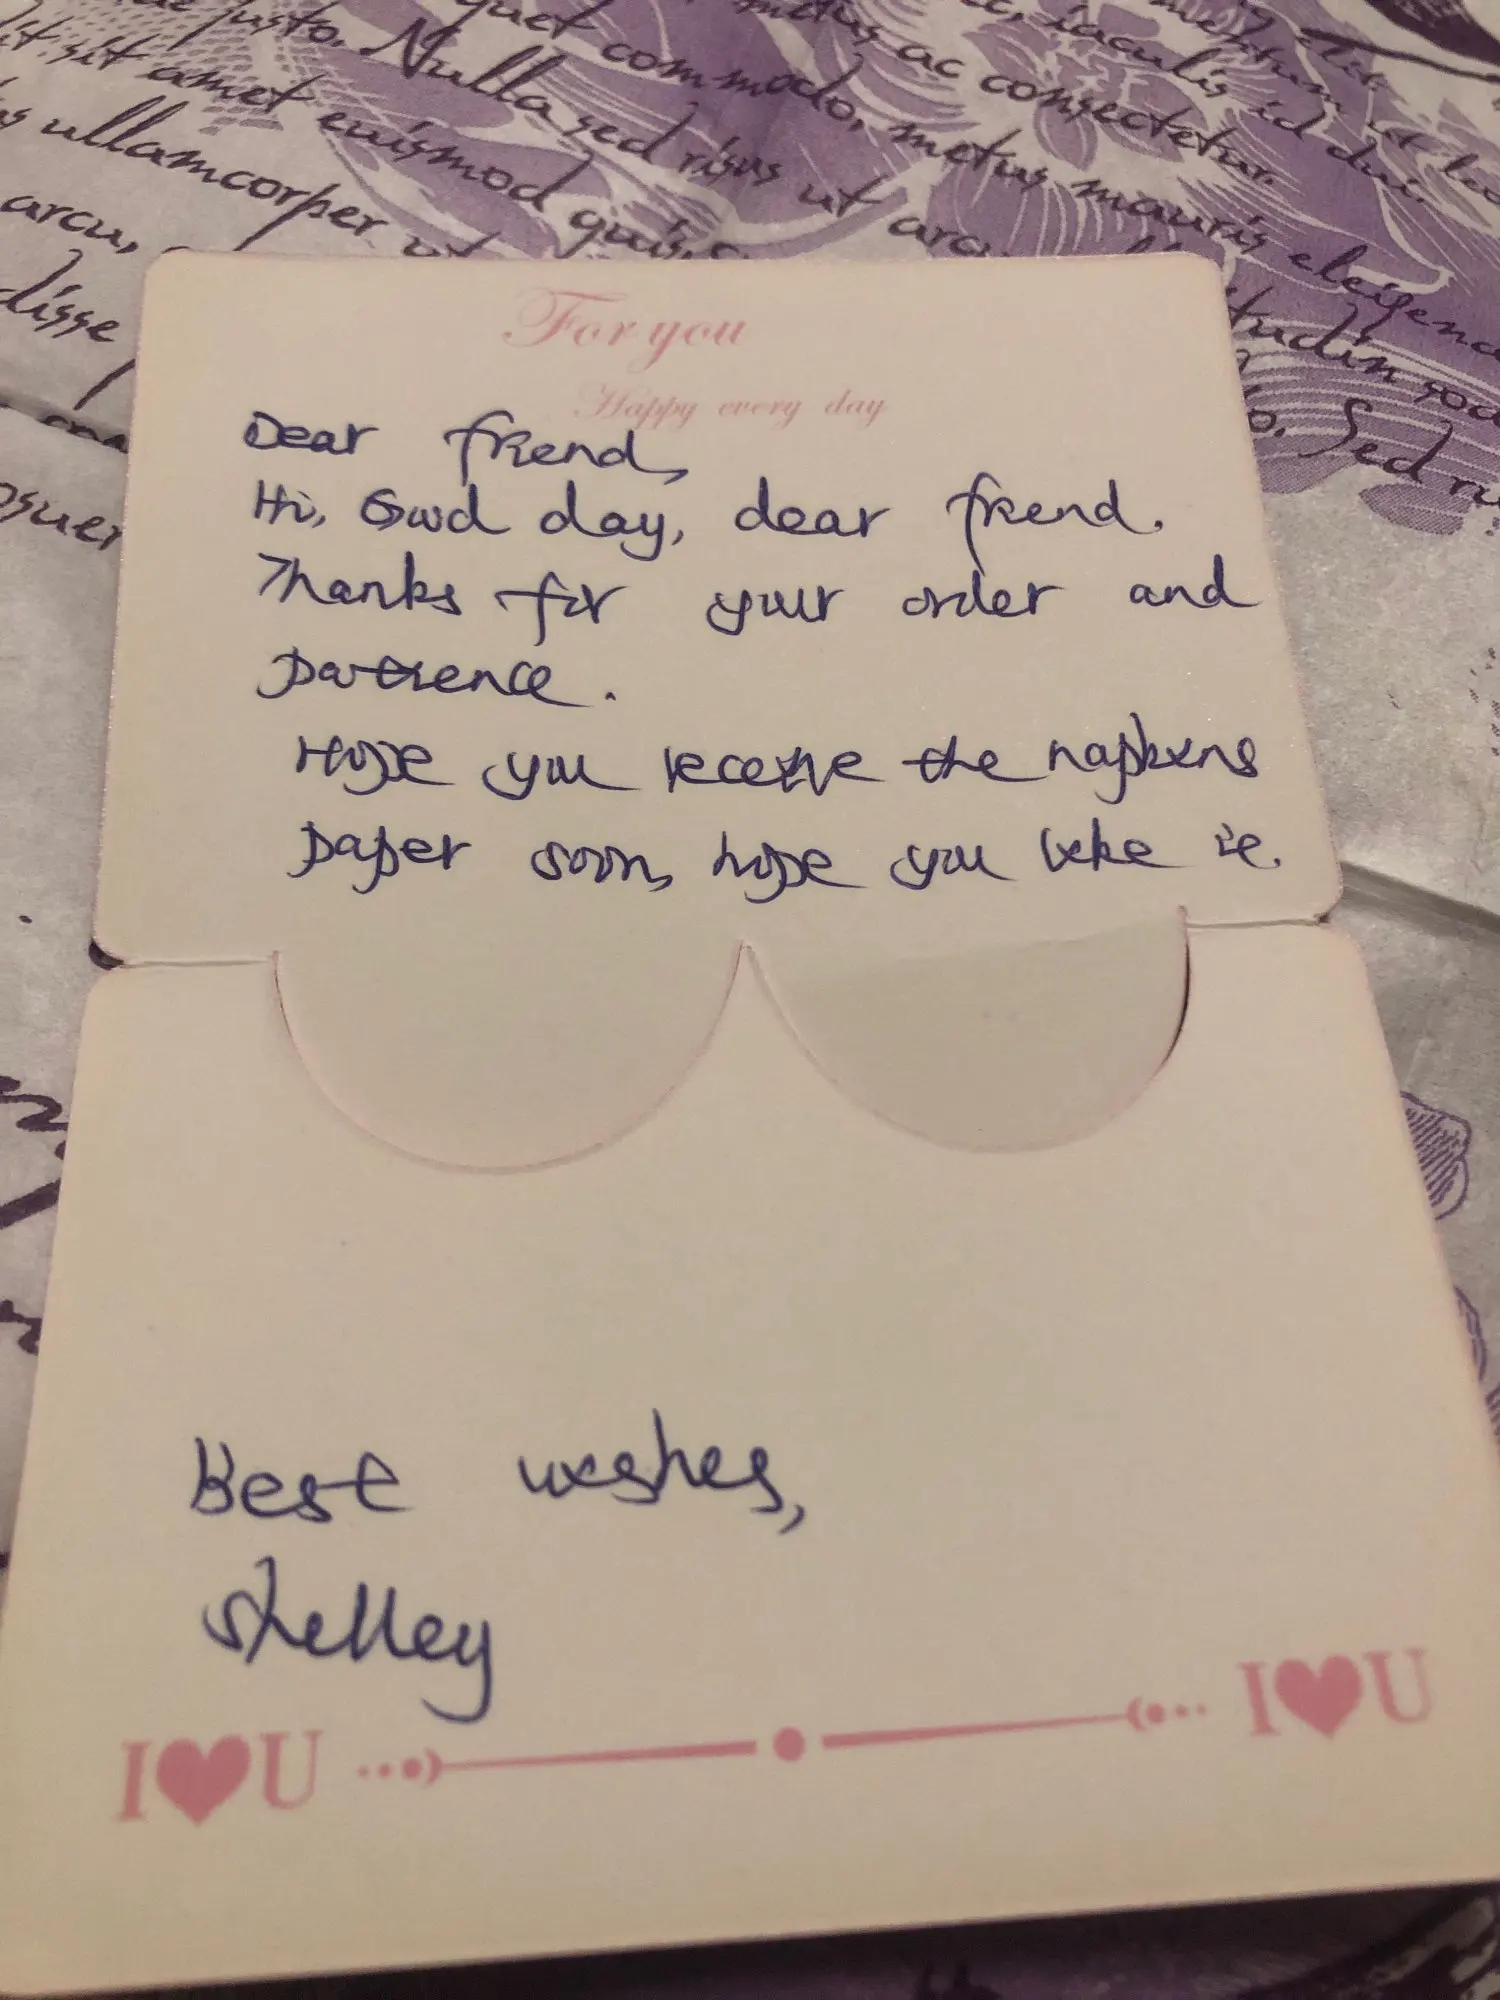 justo. Nulla sed risus ut arcu
sit amet euismod quis,
ullamcorper
arcu,
quet commodo, metus mauris eleifend
ac consectetur.
iaculis id dui.
Sed
For you
Happy every day
Dear friend,
Hi, Good day, dear friend.
Thanks for your order and
patience.
Hope you receive the napkins
paper soon, hope you like it.
Best wishes,
Shelley
I ♥ U I ♥ U